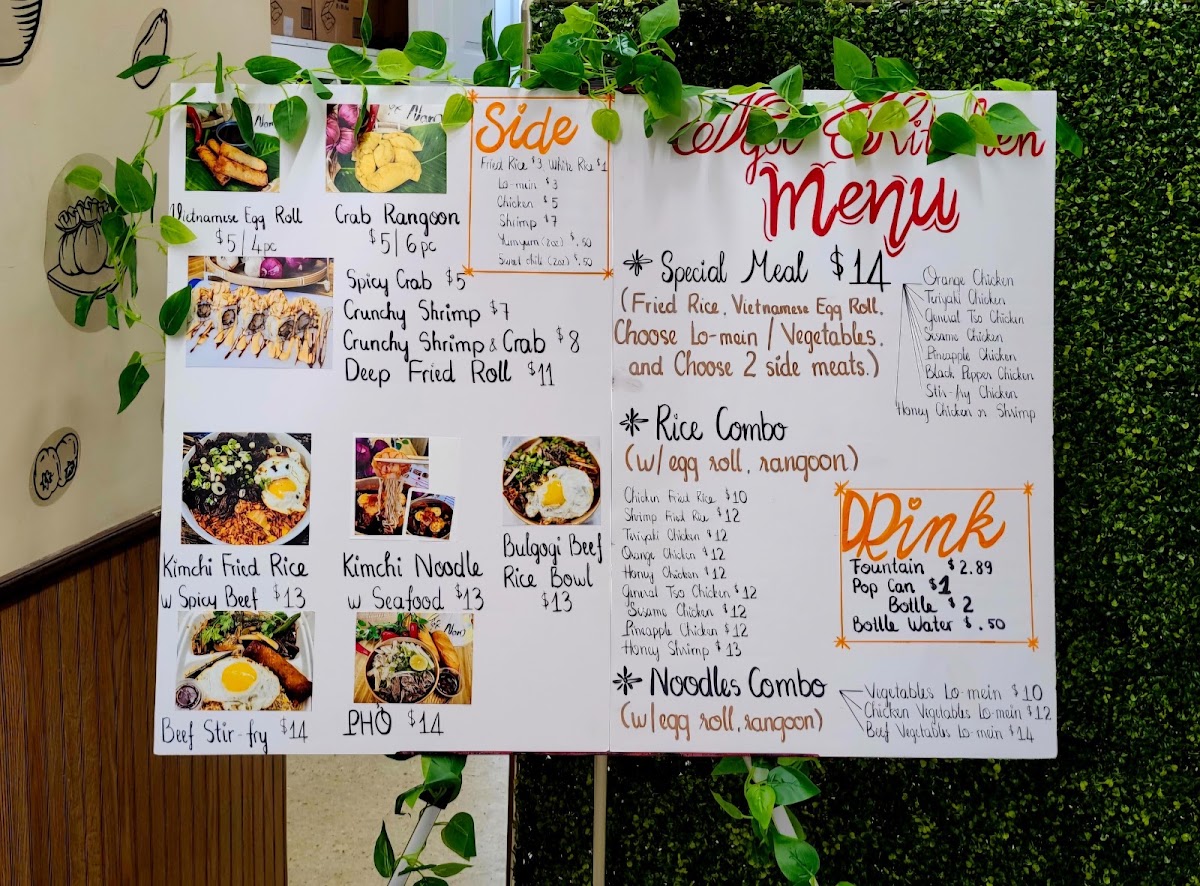 Vietnamese Egg Roll
$5/4pc
Crab Rangoon
$5/6pc
Side
Fried Rice $3, White Rice $1
Lo-mein $3
Chicken $5
Shrimp $7
Yumyum (2oz) $.50
Sweet chili (2oz) $.50
Spicy Crab $5
Crunchy Shrimp $7
Crunchy Shrimp & Crab $8
Deep Fried Roll $11
Kimchi Fried Rice
w Spicy Beef $13
Kimchi Noodle
w Seafood $13
Bulgogi Beef
Rice Bowl
$13
Beef Stir-fry $14
PHỞ $14
Kitchen
Menu
Special Meal $14
(Fried Rice, Vietnamese Egg Roll,
Choose Lo-mein / Vegetables,
and Choose 2 side meats.)
Orange Chicken
Teriyaki Chicken
General Tso Chicken
Sesame Chicken
Pineapple Chicken
Black Pepper Chicken
Stir-fry Chicken
Honey Chicken or Shrimp
Rice Combo
(w/egg roll, rangoon)
Chicken Fried Rice $10
Shrimp Fried Rice $12
Teriyaki Chicken $12
Orange Chicken $12
Honey Chicken $12
General Tso Chicken $12
Sesame Chicken $12
Pineapple Chicken $12
Honey Shrimp $13
DRink
Fountain $2.89
Pop Can $1
Bottle $2
Bottle Water $.50
Noodles Combo
(w/egg roll, rangoon)
Vegetables Lo-mein $10
Chicken Vegetables Lo-mein $12
Beef Vegetables Lo-mein $14